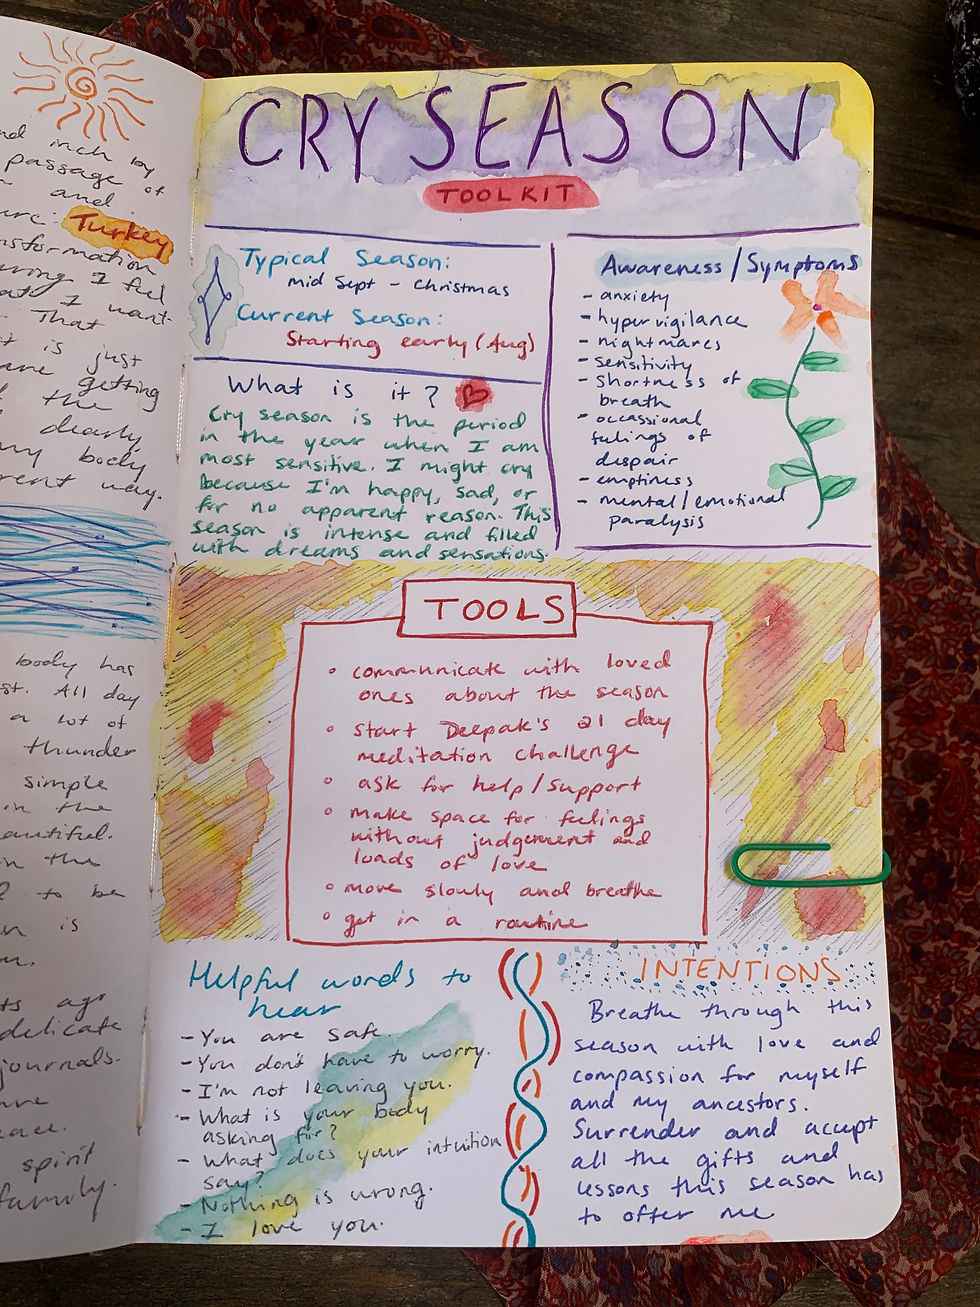 nd inch by
passage of
and
Turkey
nsformation
uring I feel
at I want
That
t is just
are getting
the
dearly
my body
rent way.
body has
st. All day
a lot of
thunder
simple
in the
eautiful.
n the
? to be
n is
ts ago
delicate
journals.
eace.
spirit
family.
CRY SEASON
TOOLKIT
Typical Season:
mid Sept - Christmas
Current Season:
Starting early (Aug)
What is it?
Cry season is the period
in the year when I am
most sensitive. I might cry
because I'm happy, sad, or
for no apparent reason. This
season is intense and filled
with dreams and sensations.
Awareness/Symptoms
- anxiety
- hypervigilance
- nightmares
- sensitivity
- shortness of
breath
- occassional
feelings of
despair
- emptiness
- mental/emotional
paralysis
TOOLS
• communicate with loved
ones about the season
• start Deepak's 21 day
meditation challenge
• ask for help/support
• make space for feelings
without judgement and
loads of love
• move slowly and breathe
• get in a routine
Helpful words to
hear
- You are safe.
- You don't have to worry.
- I'm not leaving you.
- What is your body
asking for?
- What does your intuition
say?
- Nothing is wrong.
- I love you.
INTENTIONS
Breathe through this
season with love and
compassion for myself
and my ancestors.
Surrender and accept
all the gifts and
lessons this season has
to offer me